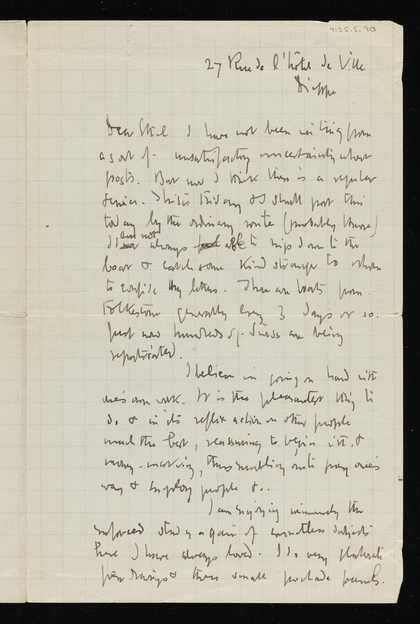 27 Rue de l'hôtel de Ville
Dieppe
Dear Ethel I have not been writing from
a sort of unsatisfactory uncertainty about
posts. But now I think there is a regular
service. This is Friday & I shall post this
today by the ordinary route (probably Havre)
I am not always able to nip down to the
boat & catch some kind stranger to whom
to confide my letters. There are boats from
Folkestone generally every 3 days or so.
Just now hundreds of are being
repatriated.
I believe in going on hard with
one's own work. It is the pleasantest thing to
do, & in its reflex action on other people
much the best, reassuring to begin with, &
money-making, thus enabling one to pay one's
way & employ people &.
I am enjoying immensely the
enforced study again of countless subjects
here I have always loved. I do very elaborate
pen drawings & then small panels.